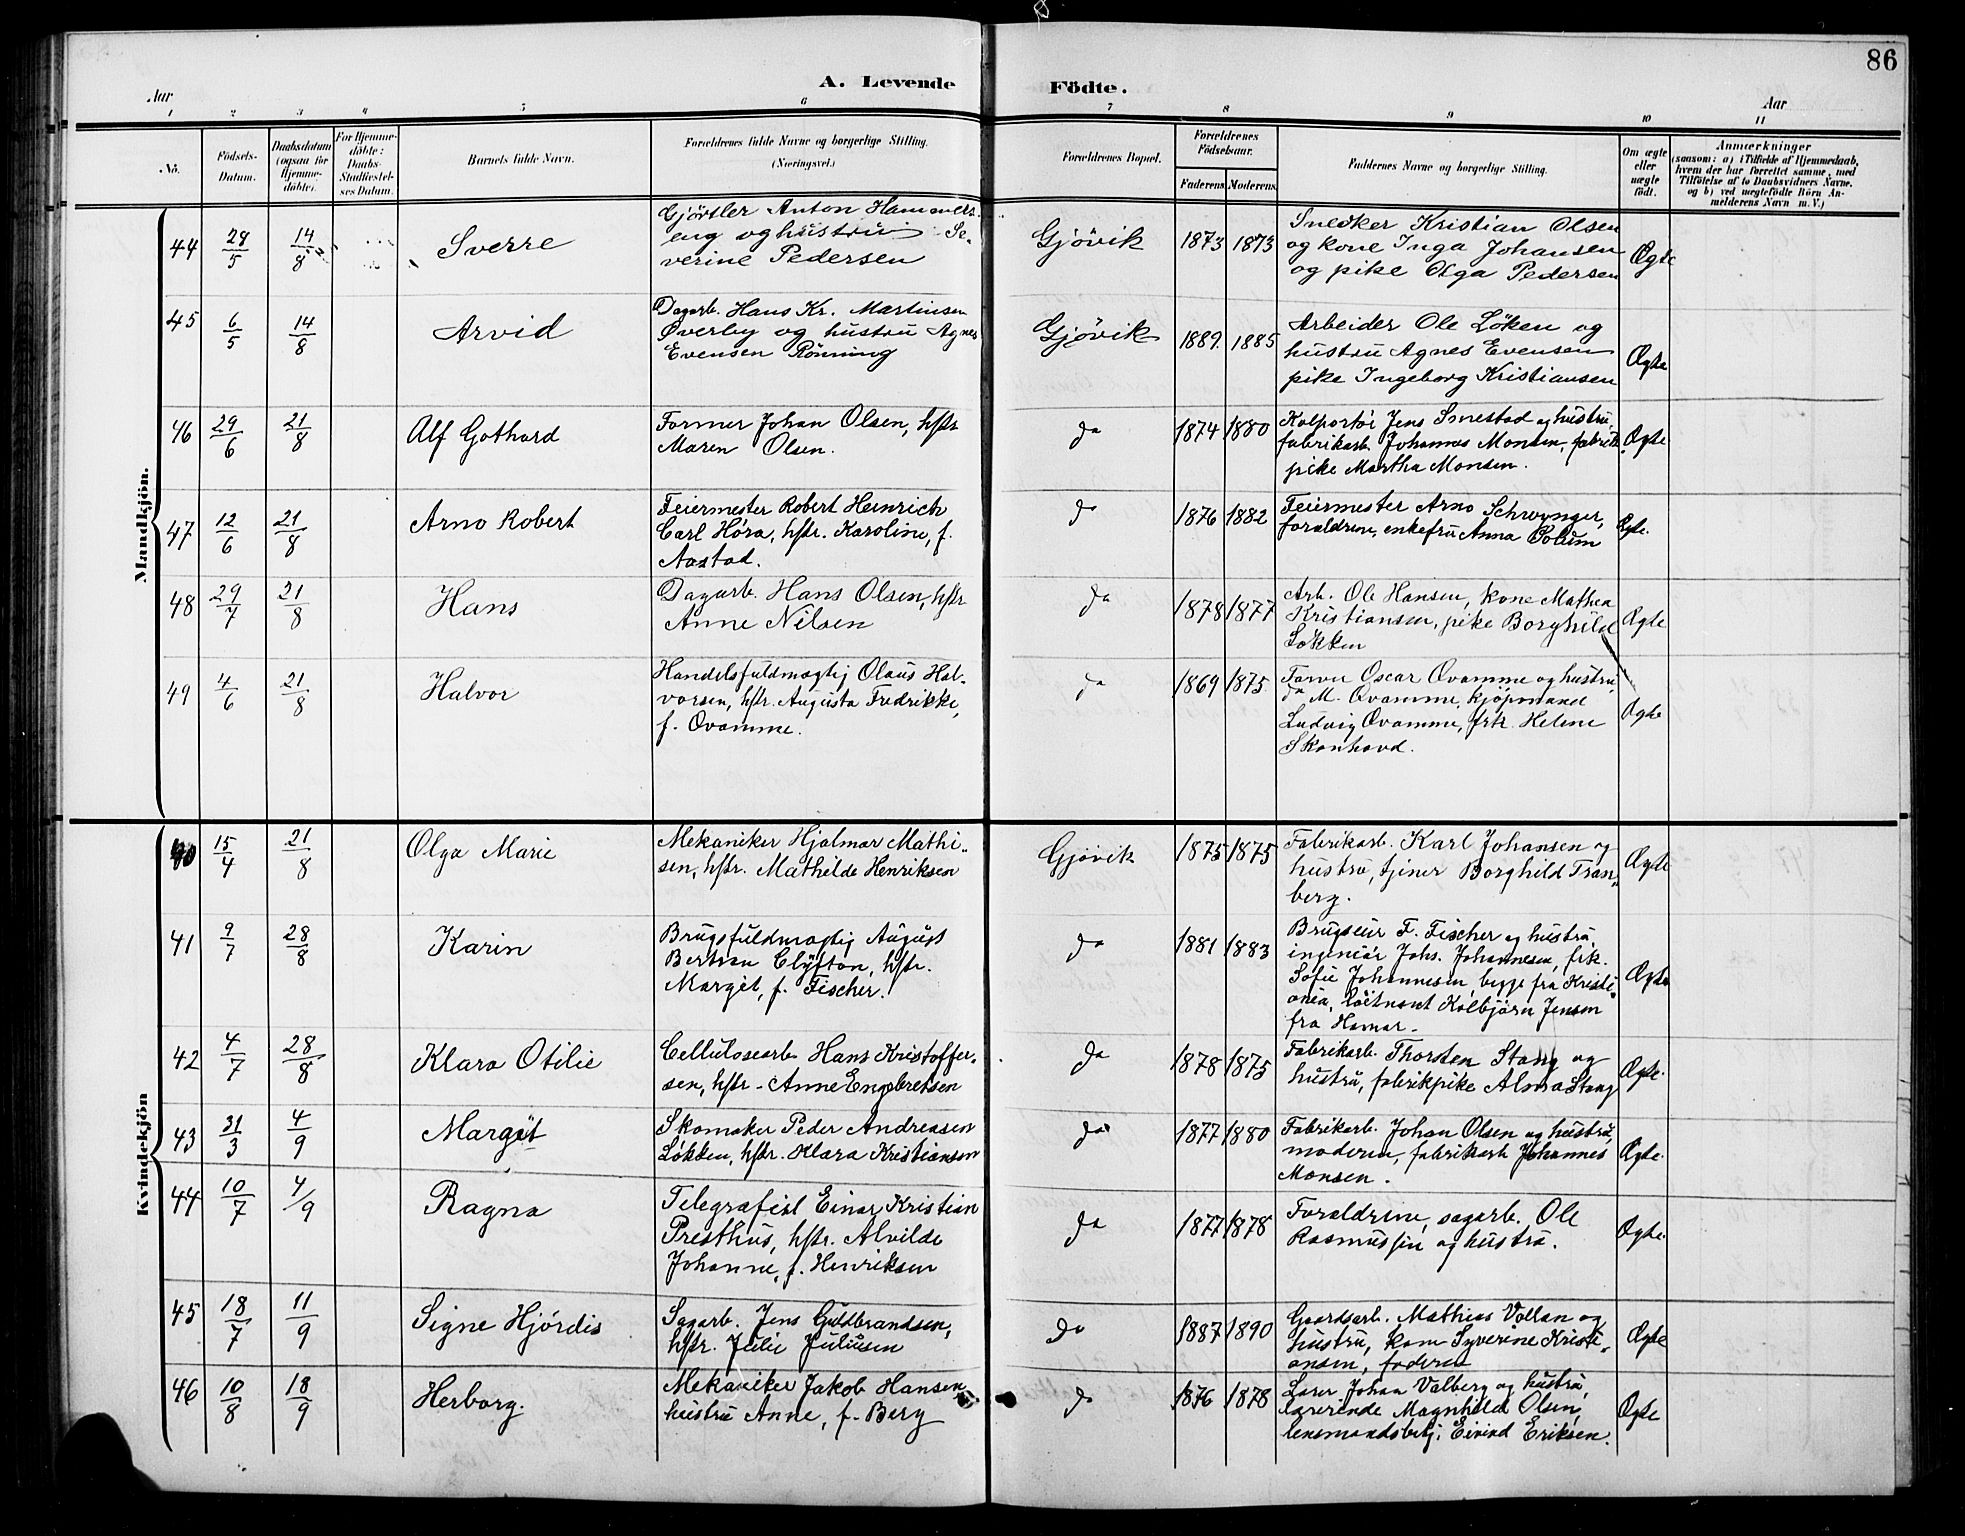 8
86
A. Levende Födte.
Aar
Aar
1 2 3 4 5 6 7 8 9 10 11
No.
Födsels-
Datum.
Daabsdatum
(ogsaa for
Hjemme-
döbte).
For Hjemme-
döbte:
Daabs-
Stadfæstel-
ses Datum.
Barnets fulde Navn.
Forældrenes fulde Navne og borgerlige Stilling.
(Næringsvei.)
Forældrenes Bopæl.
Forældrenes
Födselsaar.
Faderens. Moderens.
Faddernes Navne og borgerlige Stilling.
Om ægte
eller
uægte
født.
Anmærkninger
(saasom: a) i Tilfælde af Hjemmedaab,
hvem der har forrettet samme, med
Tilføielse af to Daabsvidners Navne,
og b) ved uægtefødte Börn An-
melderens Navn m. V.)
Mandkjön.
44 28/5 14/8 Sverre
Gjörtler Anton Hammers-
eng og hustru Se-
verine Pedersen
Gjövik 1873 1873
Snedker Kristian Olsen
og kone Inga Johansen
og pike Olga Pedersen
Ægte
45 6/5 14/8 Arvid
Dagarb. Hans Kr. Martinsen
Øverby og hustru Agnes
Evensen Rönning
Gjövik 1889. 1885
Arbeider Ole Löken og
hustru Agnes Evensen
pike Ingeborg Kristiansen
Ægte
46 29/6 21/8 Alf Gothard
Former Johan Olsen, hstr
Maren Olsen.
da 1874 1880
Kolportör Jens Smestad og hustru,
fabrikarb. Johannes Monsen, fabrik-
pike Martha Monsen.
Ægte
47 12/6 21/8 Arno Robert
Feiermester Robert Heinrich
Carl Höra, hstr. Karoline, f.
Aastad.
da 1876 1882
Feiermester Arno Schwynger,
forældrene, enkefru Anna Solum
Ægte.
48 29/7 21/8 Hans
Dagarb. Hans Olsen, hstr
Anne Nilsen
da 1878 1877
Arb. Ole Hansen, kone Mathea
Kristiansen, pike Borghild
Lökken
Ægte
49 4/6 21/8 Halvor
Handelsfuldmægtig Olaus Hal-
vorsen, hstr. Augusta Fredrikke,
f. Qvamme.
da 1869 1875
Farver Oscar Qvamme og hustru,
da M. Qvamme, kjöpmand
Ludvig Qvamme, frk. Helene
Skonhovd.
Ægte
Kvindekjön
40 15/4 21/8 Olga Marie
Mekaniker Hjalmar Mathi-
sen, hstr. Mathilde Henriksen
Gjövik 1875 1875
Fabrikarb. Karl Johansen og
hustru, tjener Borghild Tran-
berg.
Ægte
41 9/7 28/8 Karin
Brugsfuldmægtig August
Bertran Clyfton, hstr.
Margit, f. Fischer.
da 1881 1883
Brugseier F. Fischer og hustru,
ingeniör Johs. Johannesen, frk.
Sofie Johannesen, begge fra Kristi-
ania, löitnant Kolbjörn Jensen
fra Hamar.
Ægte
42 4/7 28/8 Klara Otilie
Cellulosearb Hans Kristoffer-
sen, hstr. Anne Engebretsen
da 1878 1875
Fabrikarb. Thorsten Stang og
hustru, fabrikpike Alma Stang
Ægte.
43 31/3 4/9 Margit
Skomaker Peder Andreasen
Lökken, hstr. Klara Kristiansen
da 1877 1880
Fabrikarb. Johan Olsen og hustru,
moderen, fabrikarb Johannes
Monsen.
Ægte.
44 10/7 4/9 Ragna
Telegrafist Einar Kristian
Presthus, hstr. Alvilde
Johanne, f. Henriksen
da 1877 1878
Forældrene, sagarb. Ole
Rasmussen og hustru.
Ægte.
45 18/7 11/9 Signe Hjördis
Sagarb. Jens Guldbrandsen,
hstr. Julie Juliusen
da 1887 1890
Gaardsarb. Mathias Vollan og
hustru, kone Syverine Kristi-
ansen, faderen
Ægte
46 10/8 18/9 Herborg.
Mekaniker Jakob Hansen
hustru Anne, f. Berg
da 1876 1878
Lærer Johan Valberg og hustru,
lærerinde Magnhild Olsen,
lensmandsbetj. Eivind Eriksen.
Ægte